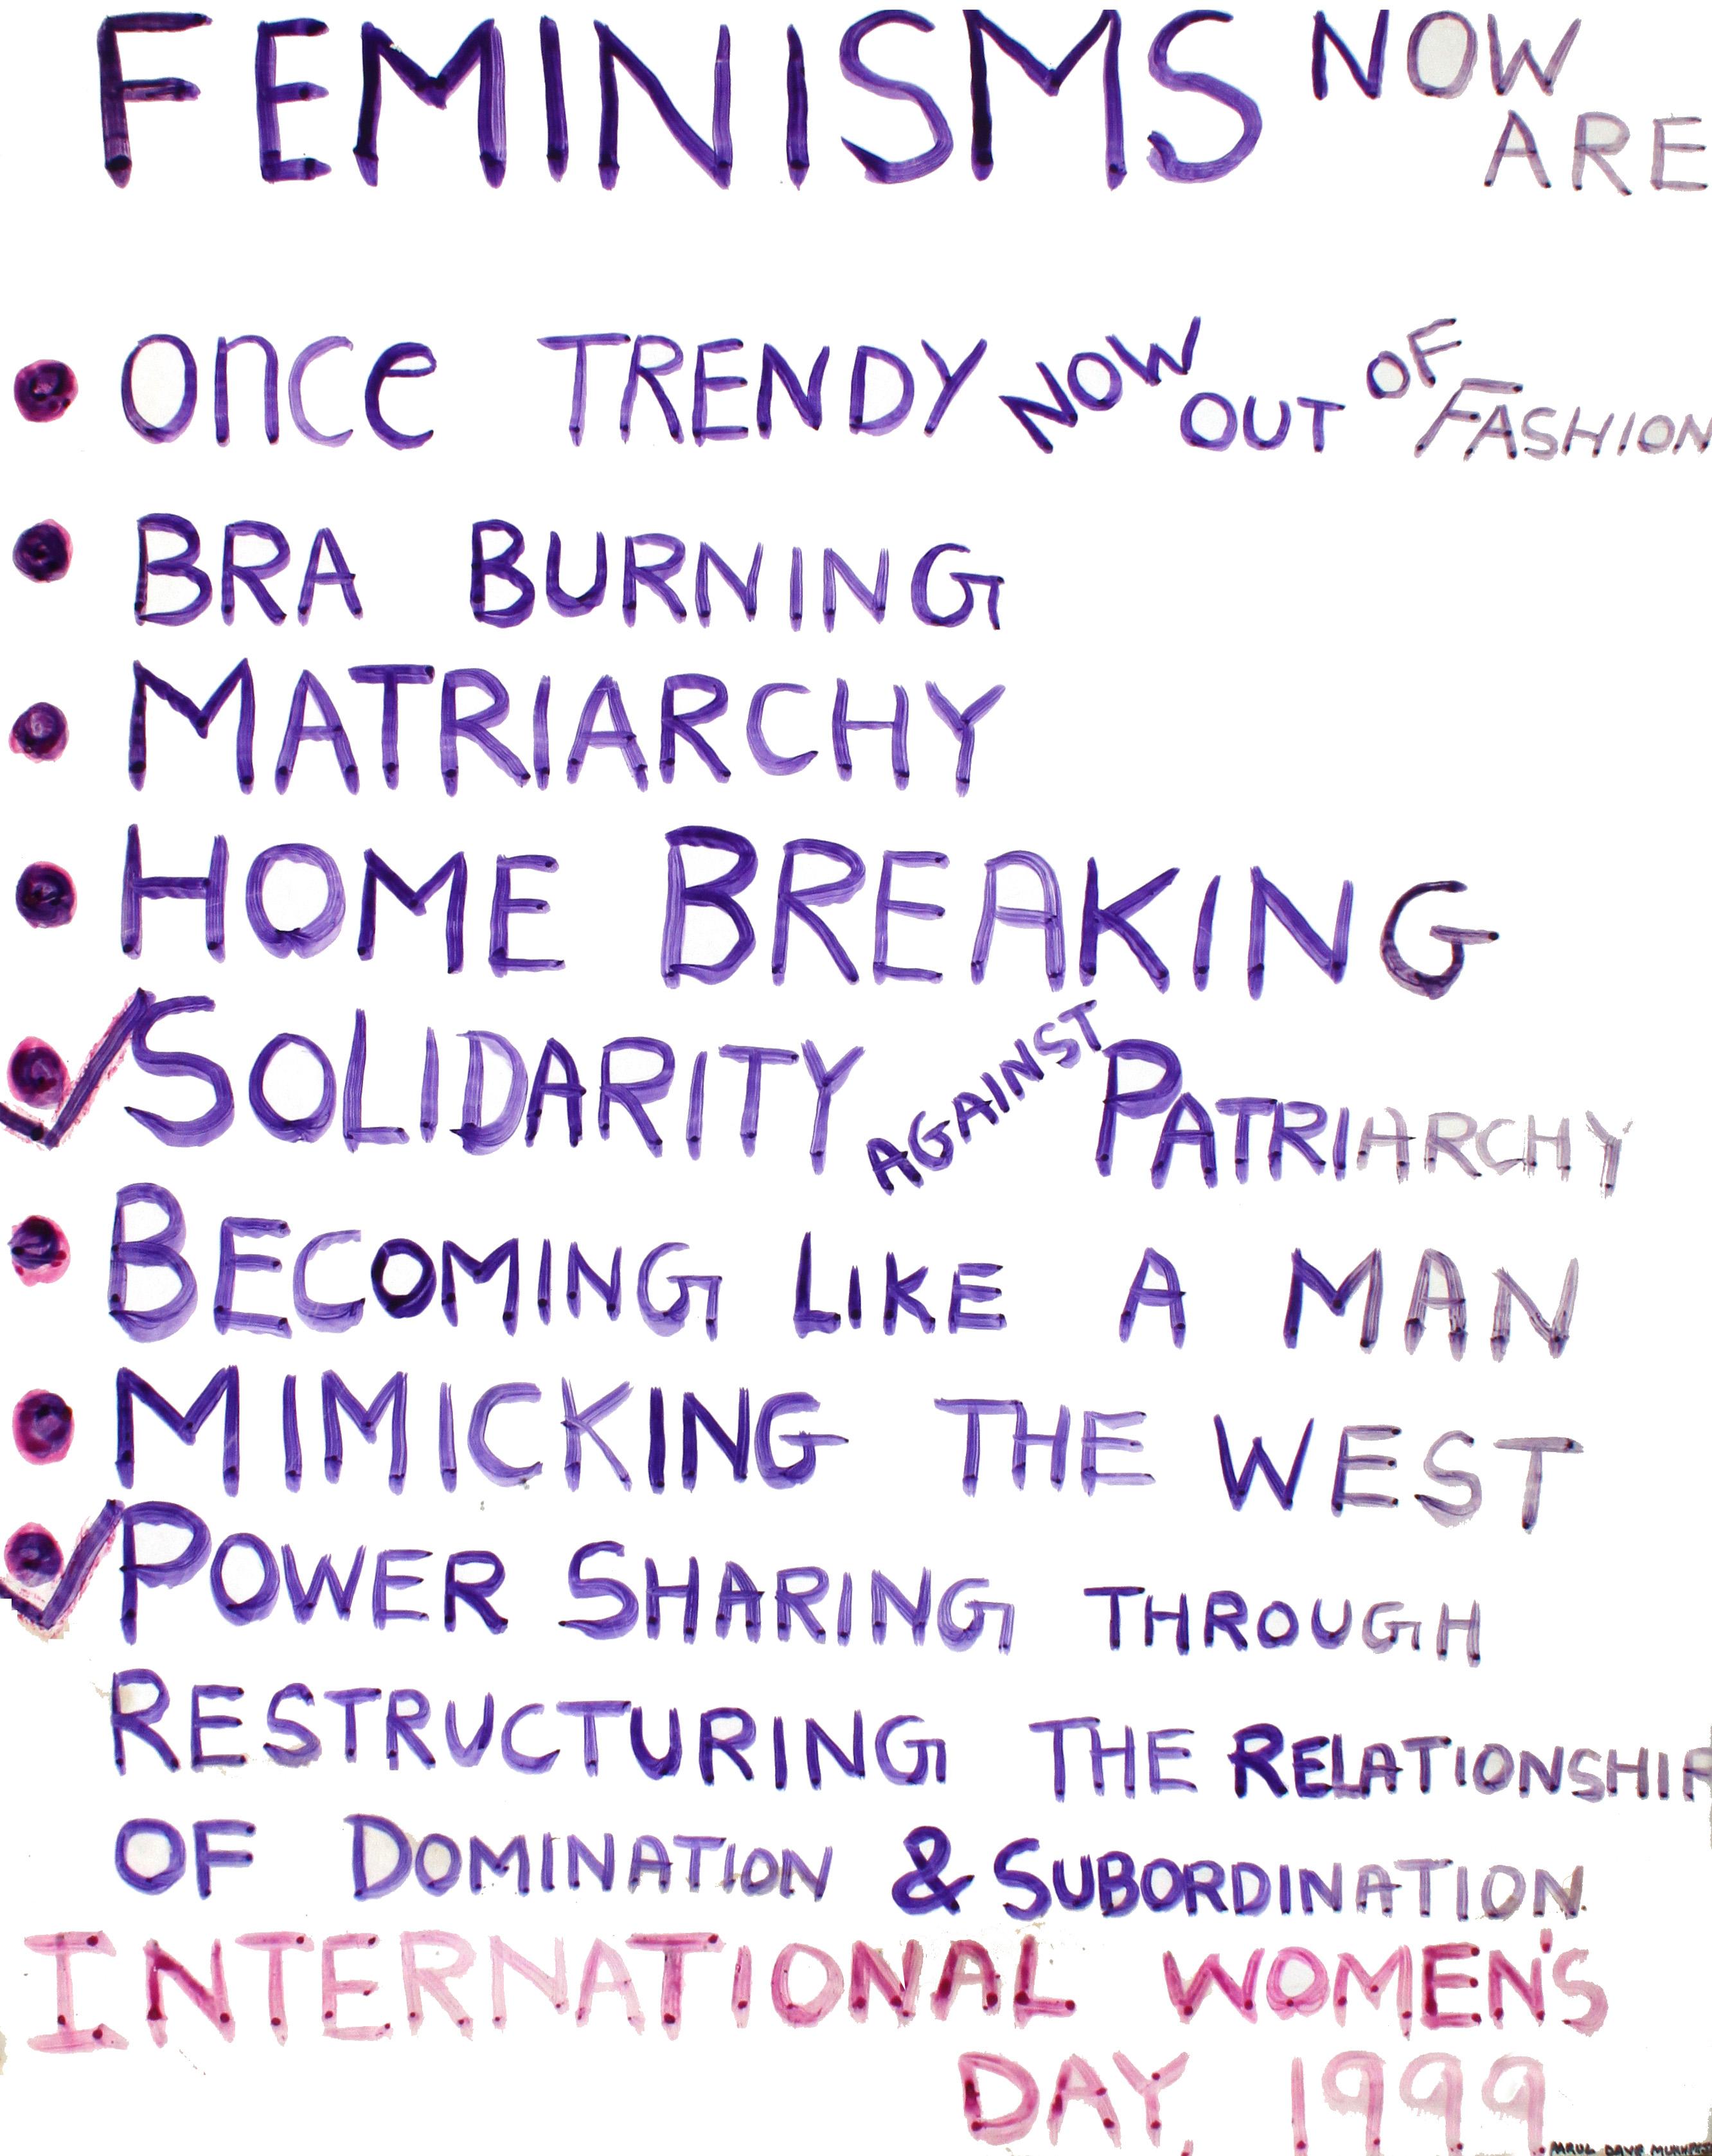 FEMINISMS NOW ARE
• Once TRENDY NOW OUT OF FASHION
• BRA BURNING
• MATRIARCHY
• HOME BREAKING
• ✓ SOLIDARITY AGAINST PATRIARCHY
• BECOMING LIKE A MAN
• MIMICKING THE WEST
• ✓ POWER SHARING THROUGH
RESTRUCTURING THE RELATIONSHIP
OF DOMINATION & SUBORDINATION
INTERNATIONAL WOMEN'S
DAY, 1999